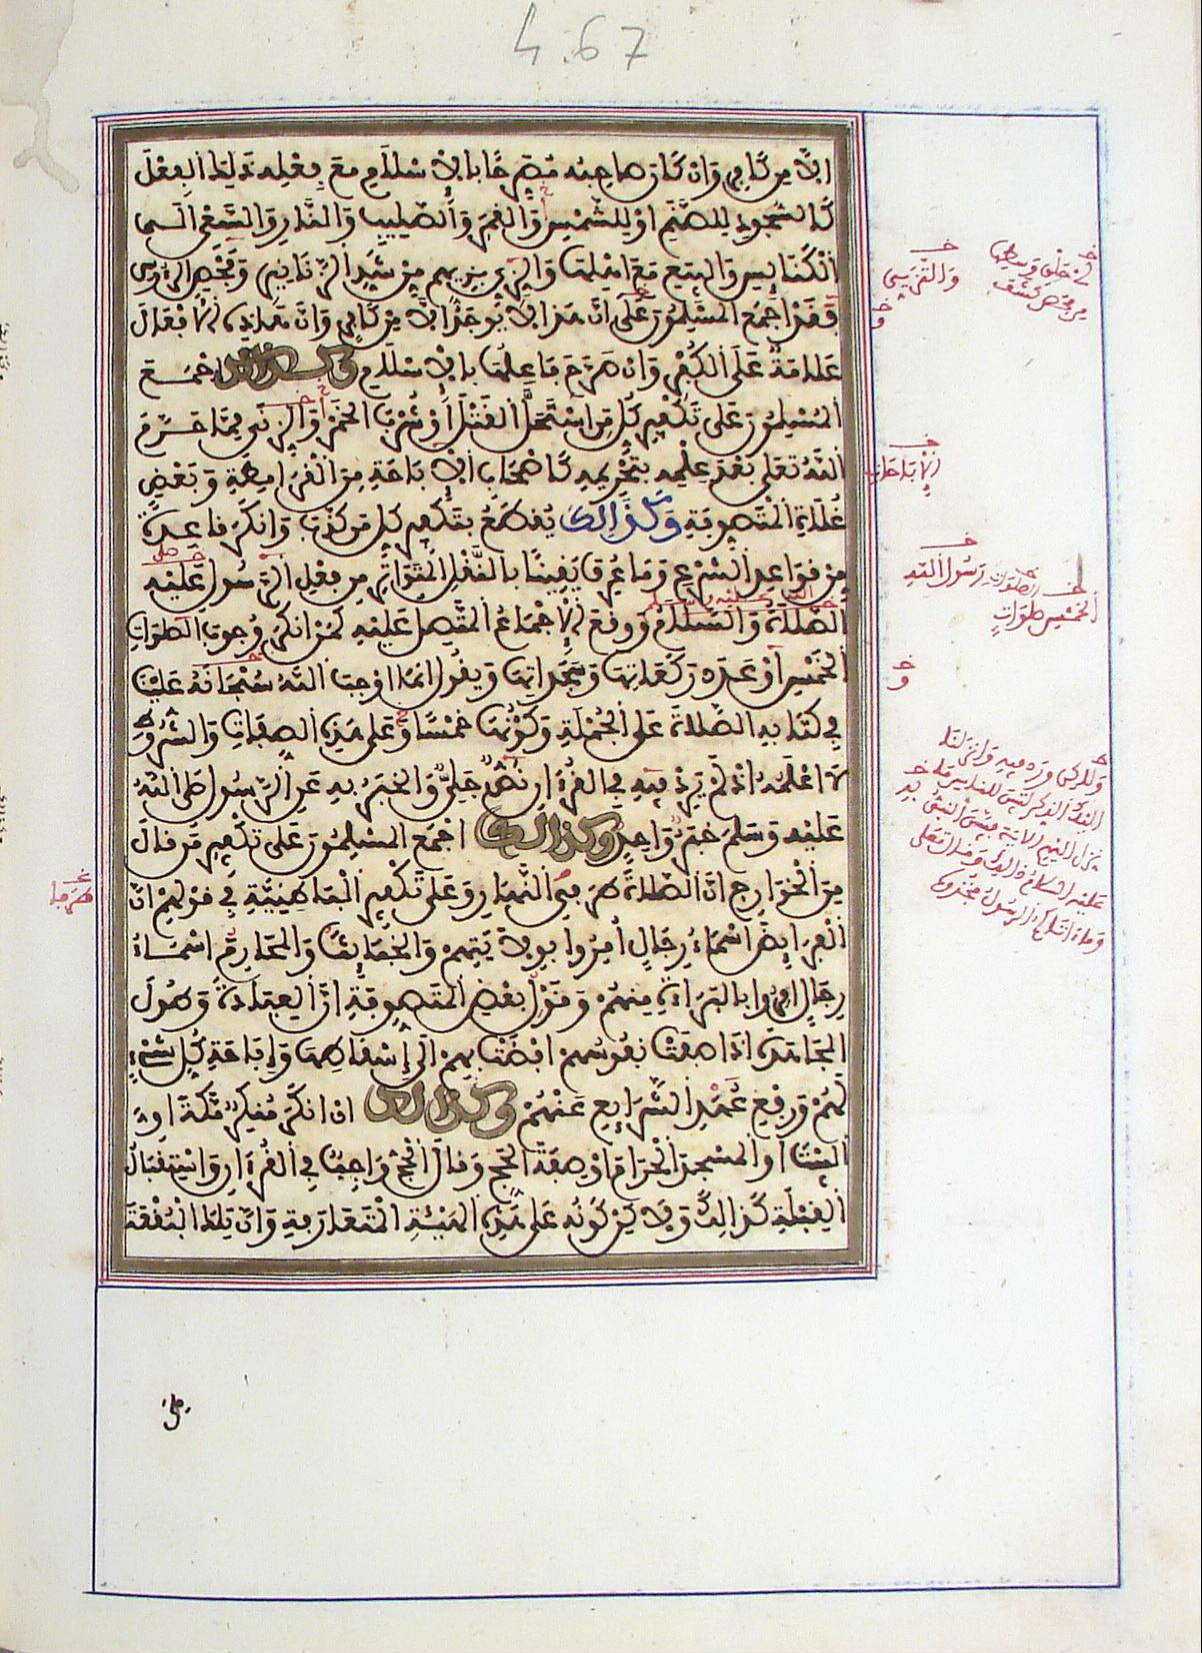 4.67
الا من كافر وان كان صاحبه مصرحا بالاسلام مع فعله ذلك الفعل
كالسجود للصنم او للشمس والقمر والصليب والنار والسعي الى
الكنايس والبيع مع اهلها والتزيي بزيهم من شد الزنانير وفحص الروس
فقد اجمع المسلمون على ان هذا لا يوجد الا من كافر وان هذه الافعال
علامة على الكفر وان صرح فاعلها بالاسلام وكذالك اجمع
المسلمون على تكفير كل من استحل القتل او شرب الخمر والزنى مما حرم
الله تعلى بعد علمه بتحريمه كاصحاب الاباحة من القرامطة وبعض
غلاة المتصوفة وكذالك يقطع بتكفير كل من كذب وانكر قاعدة
من قواعد الشرع وما عرف يقينا بالنقل المتواتر من فعل الرسول عليه
الصلاة والسلام ووقع الاجماع المتصل عليه كمن انكر وجوب الصلوات
الخمس او عدد ركعاتها وسجداتها ويقول انما اوجب الله سبحانه علينا
في كتابه الصلاة على الجملة وكونها خمسا وعلى هذه الصفات والشروط
لا اعلمه اذ لم يرد فيه في القرءان نص جلي والخبر به عن الرسول صلى الله
عليه وسلم خبر واحد وكذالك اجمع المسلمون على تكفير من قال
من الخوارج ان الصلاة طرفي النهار وعلى تكفير الباطنية في قولهم ان
الفرايض اسماء رجال امروا بولايتهم والخبايث والمحارم اسماء
رجال امروا بالبراءة منهم وقول بعض المتصوفة ان العبادة وطول
المجاهدة اذا صفت نفوسهم افضت بهم الى اسقاطها واباحة كل شيء
لهم ورفع عهد الشرايع عنهم وكذالك ان انكر منكر مكة او
البيت او المسجد الحرام او صفة الحج وقال الحج واجب في القرءان واستقبال
القبلة كذالك ولاكن كونه على هذه الهيئة المتعارفة وان تلك البقعة
والتزيي
الاباحة
رسول الله
الخمس صلوات